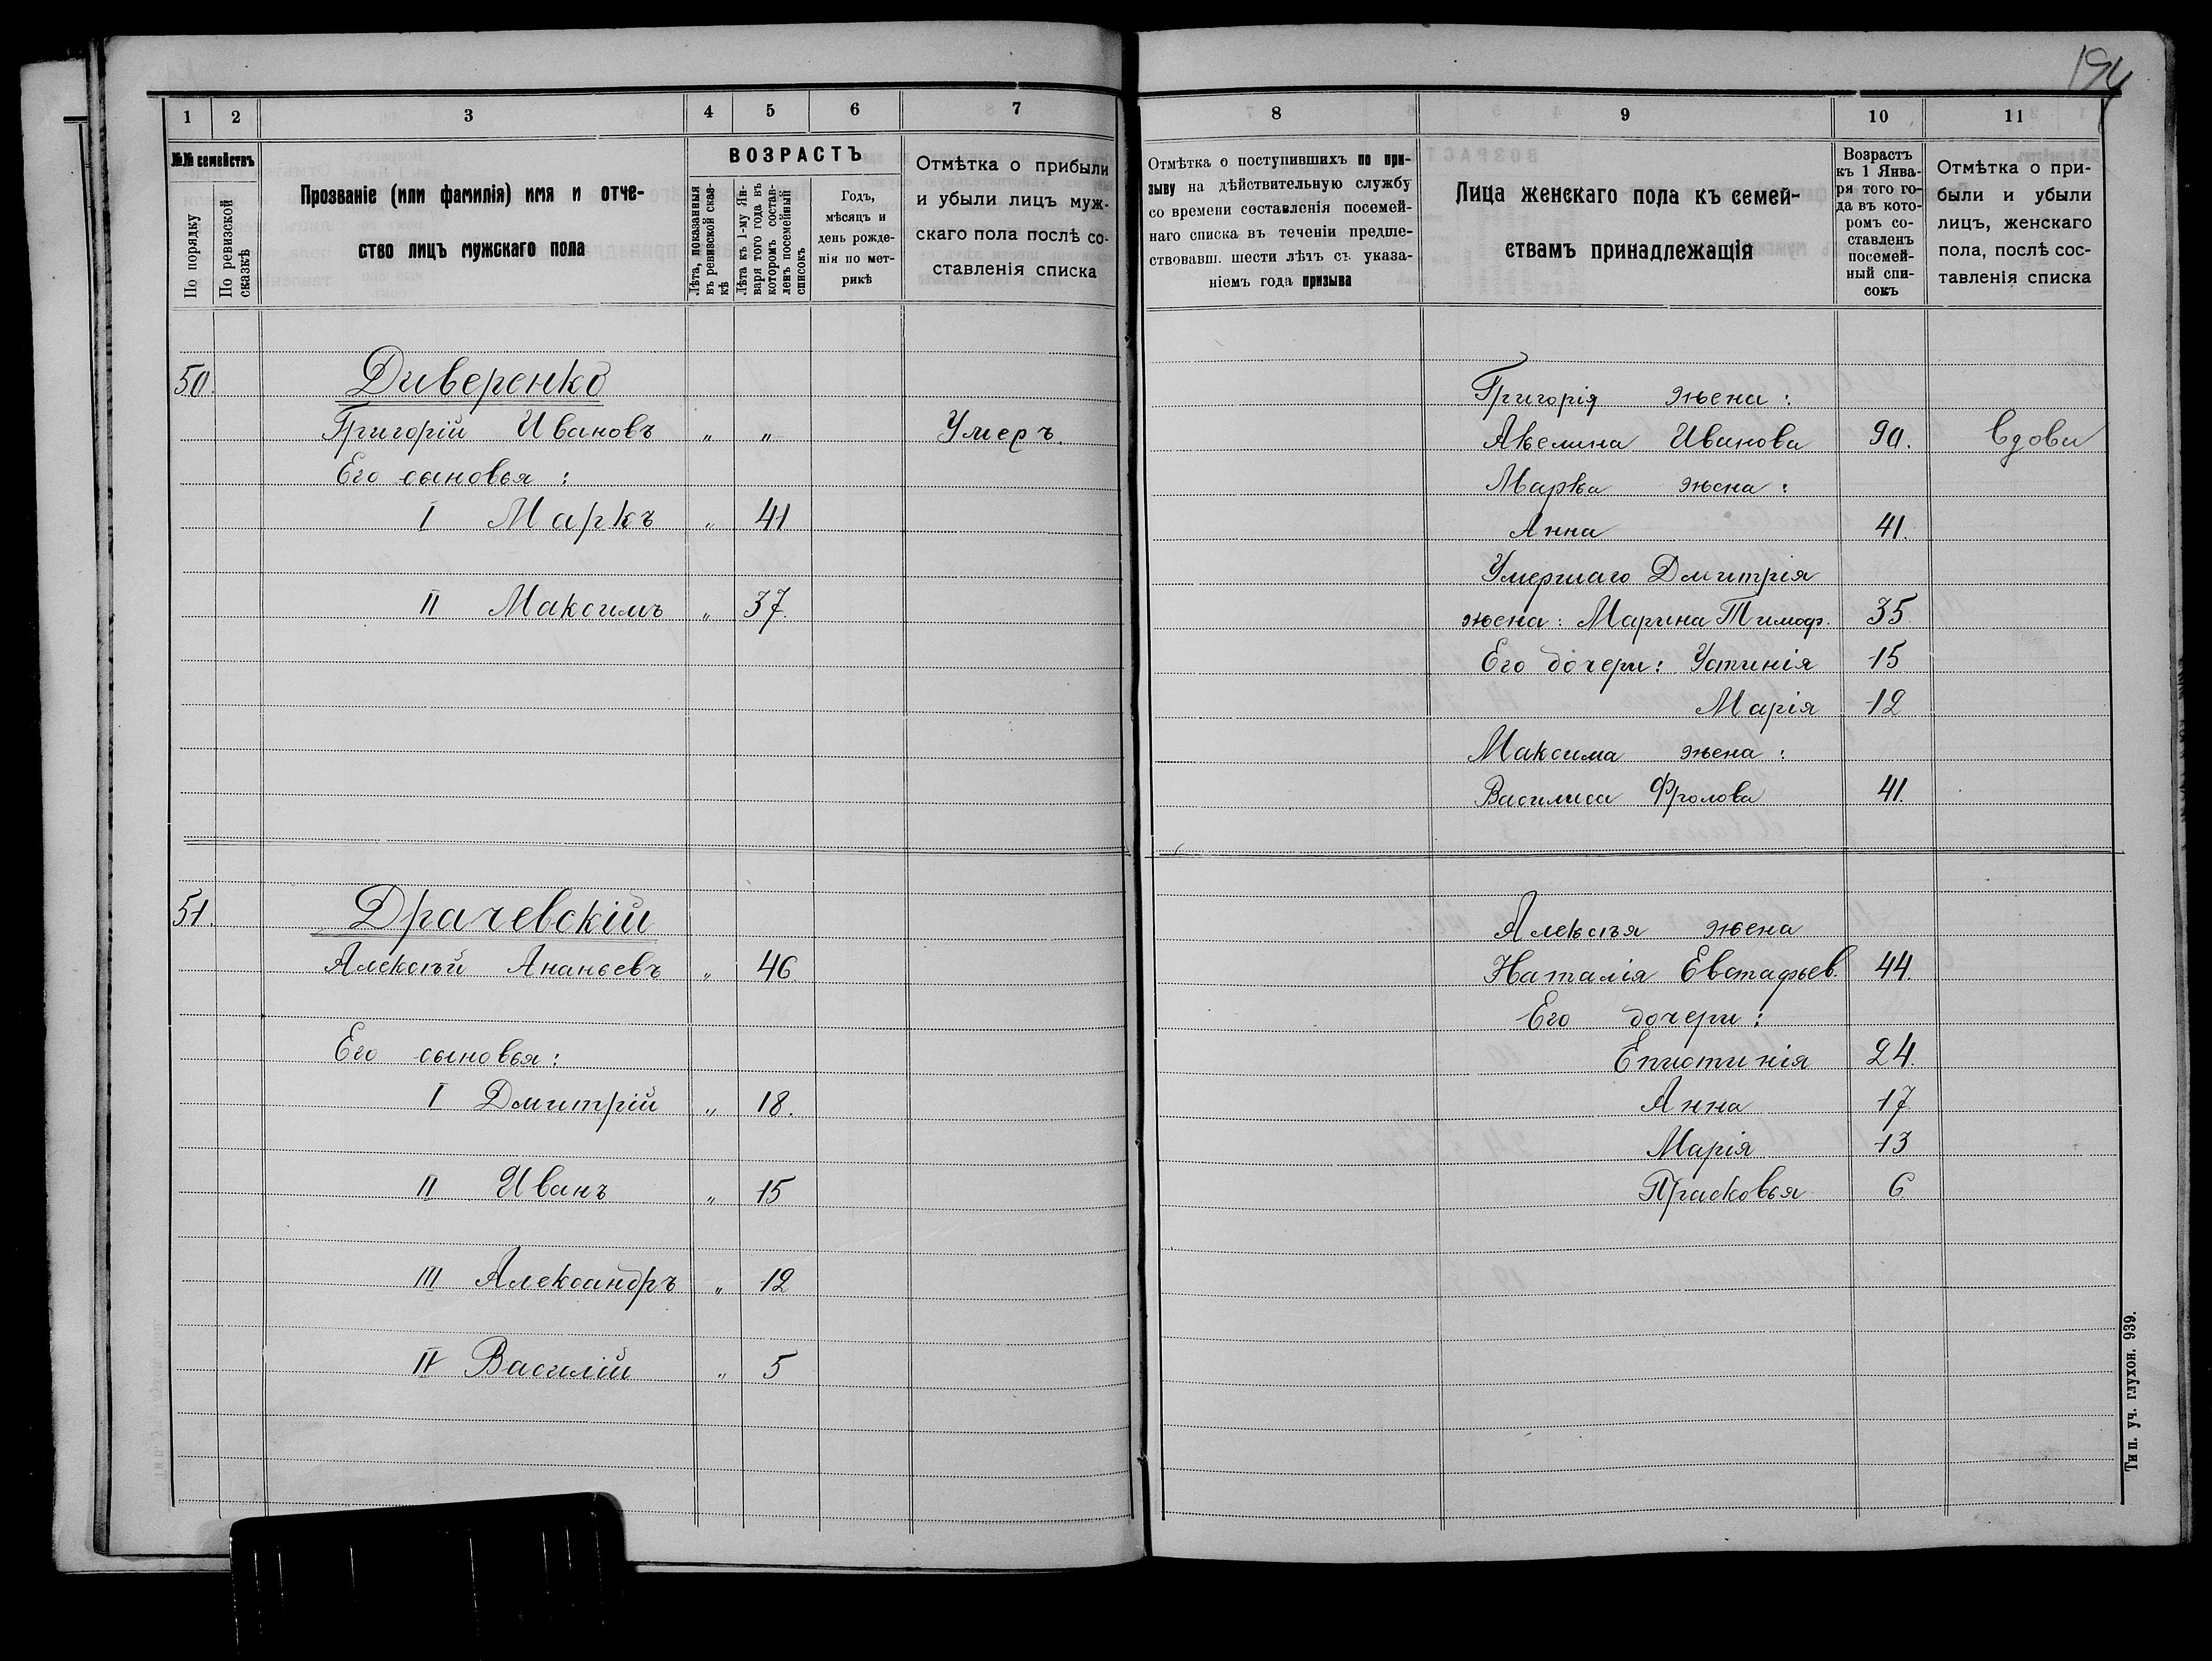 194
1
2
3
4
5
6
7
№№ семействъ
По порядку
По ревизской сказкѣ
Прозваніе (или фамилія) имя и отче-
ство лицъ мужскаго пола
ВОЗРАСТЪ
Лѣта, показанныя въ ревизской сказ-кѣ
Лѣта къ 1-му Ян-варя того года въ которомъ состав-ленъ посемейный списокъ
Годъ,
мѣсяцъ и
день рожде-
нія по мет-
рикѣ
Отмѣтка о прибыли
и убыли лицъ муж-
скаго пола послѣ со-
ставленія списка
50.
Диверенко
Григорій Ивановъ " " Умеръ.
Его сыновья :
I Маркъ " 41
II Максимъ " 37.
51.
Драчевскій
Алексѣй Ананьевъ " 46.
Его сыновья :
I Дмитрій " 18.
II Иванъ " 15
III Александръ " 12
IV Василій " 5
8
9
10
11
Отмѣтка о поступившихъ по при-
зыву на дѣйствительную службу
со времени составленія посемей-
наго списка въ теченіи предше-
ствовавш. шести лѣтъ съ указа-
ніемъ года призыва
Лица женскаго пола къ семей-
ствамъ принадлежащія
Возрастъ
къ 1 Янва-
ря того го-
да въ кото-
ромъ со-
ставленъ
посемей-
ный спи-
сокъ
Отмѣтка о при-
были и убыли
лицъ, женскаго
пола, послѣ сос-
тавленія списка
Григорія жена :
Акелина Иванова 90. Вдова
Марка жена :
Анна 41.
Умершаго Дмитрія
жена : Марина Тимоф. 35
Его дочери : Устинія 15
Марія 12
Максима жена :
Василиса Фролова 41.
Алексѣя жена
Наталія Евстафьев. 44.
Его дочери :
Епистинія 24.
Анна 17
Марія 13
Прасковья 6
Тип. уч. глухон. 939.